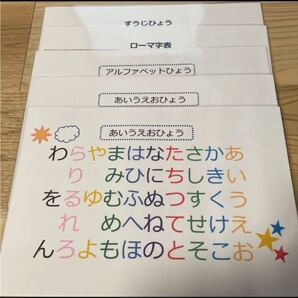 すうじひょう
ローマ字表
アルファベットひょう
あいうえおひょう
あいうえおひょう
あいうえお
かきくけこ
さしすせそ
たちつてと
なにぬねの
はひふへほ
まみむめも
やゆよ
らりるれろ
わをん